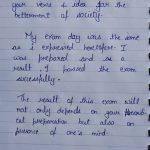 your views & idea for the
betterment of society.
My exam day was the same
as i expressed heretofore. I
was prepared and as a
result I passed the exam
successfully.
The result of this exam will
not only depends on your theoreti-
cal preparation but also on
presence of one's mind.